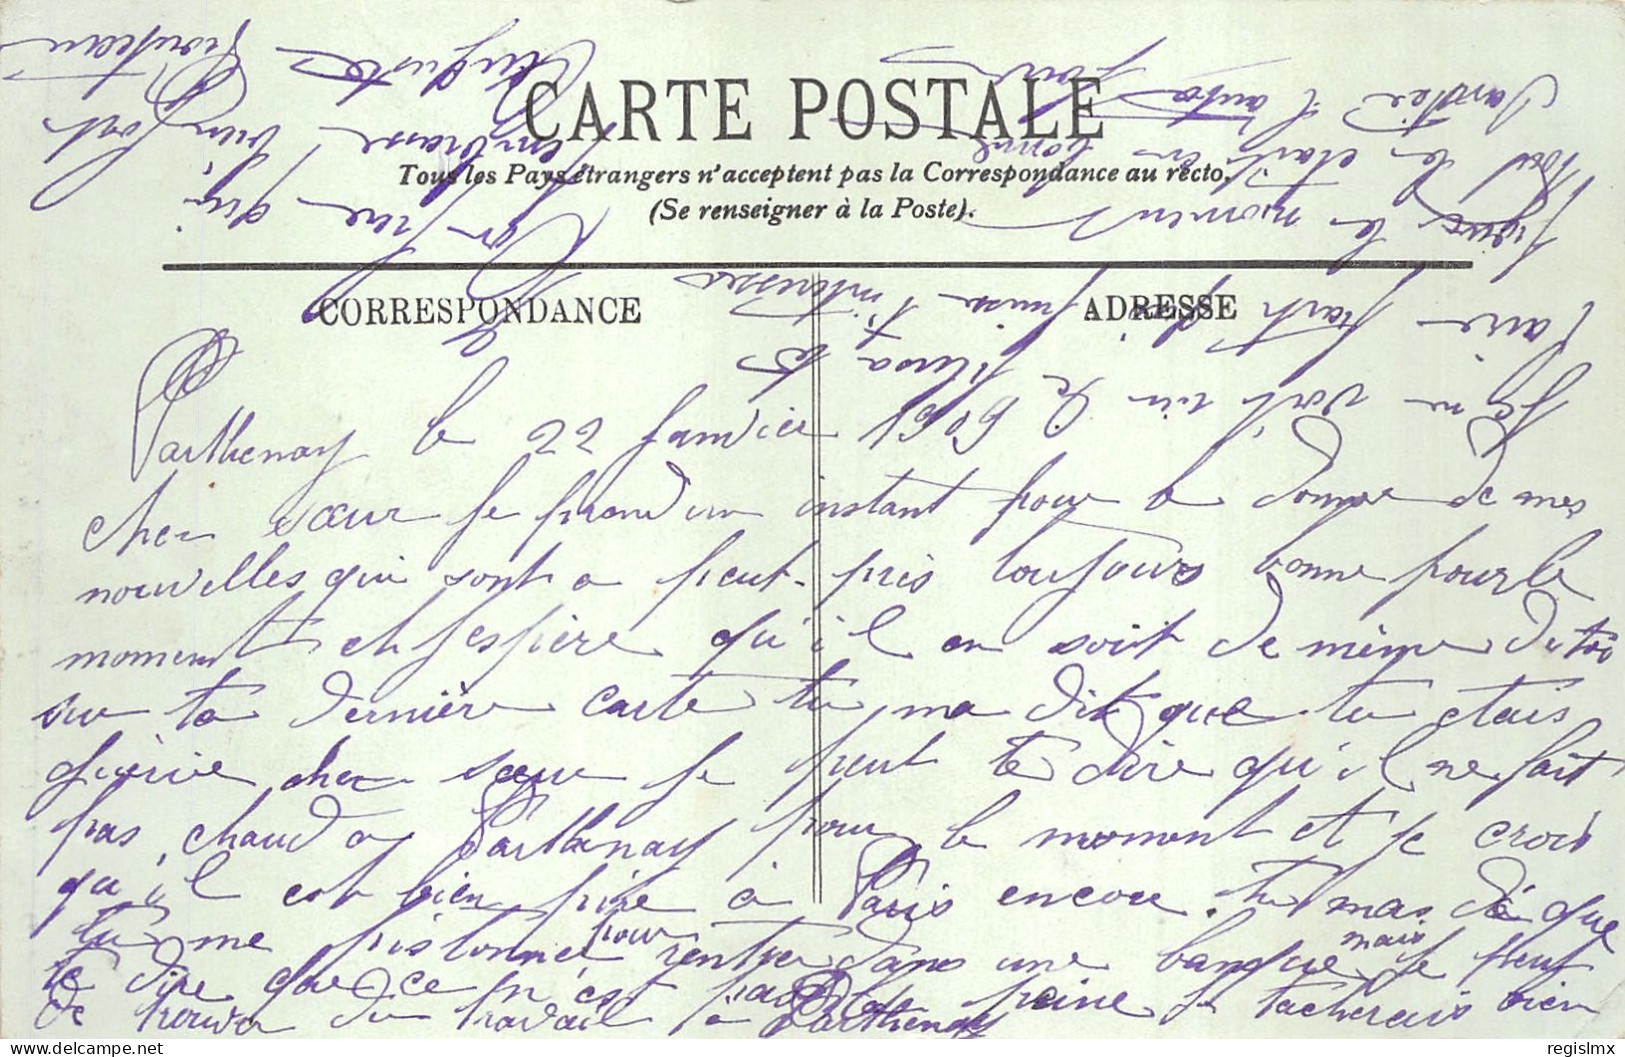 CARTE POSTALE
Tous les Pays étrangers n'acceptent pas la Correspondance au recto.
(Se renseigner à la Poste).
CORRESPONDANCE
ADRESSE
Parthenay le 22 Janvier 1909
cher sœur je prend un instant pour te donner de mes
nouvelles qui sont a peut-près toujours bonne pour le
moment et j'espère qu'il en soit de même de toi
sur ta dernière carte tu ma dit que tu etais
guérie cher sœur je peut te dire qu'il ne fait
pas chaud a Parthenay pour le moment et je crois
qu'il est bien pire à Paris encore. tu mas dé que
tu me pistonner pour rentrer dans une banque mais je peut
te dire que ce n'est pas la peine je tacherais bien
de trouver du travail a Parthenay
Je ne voit rien de plus a te
faire part qui puise t'interesser
pour le moment
Ton frère qui
t'embrasse bien fort
Auguste